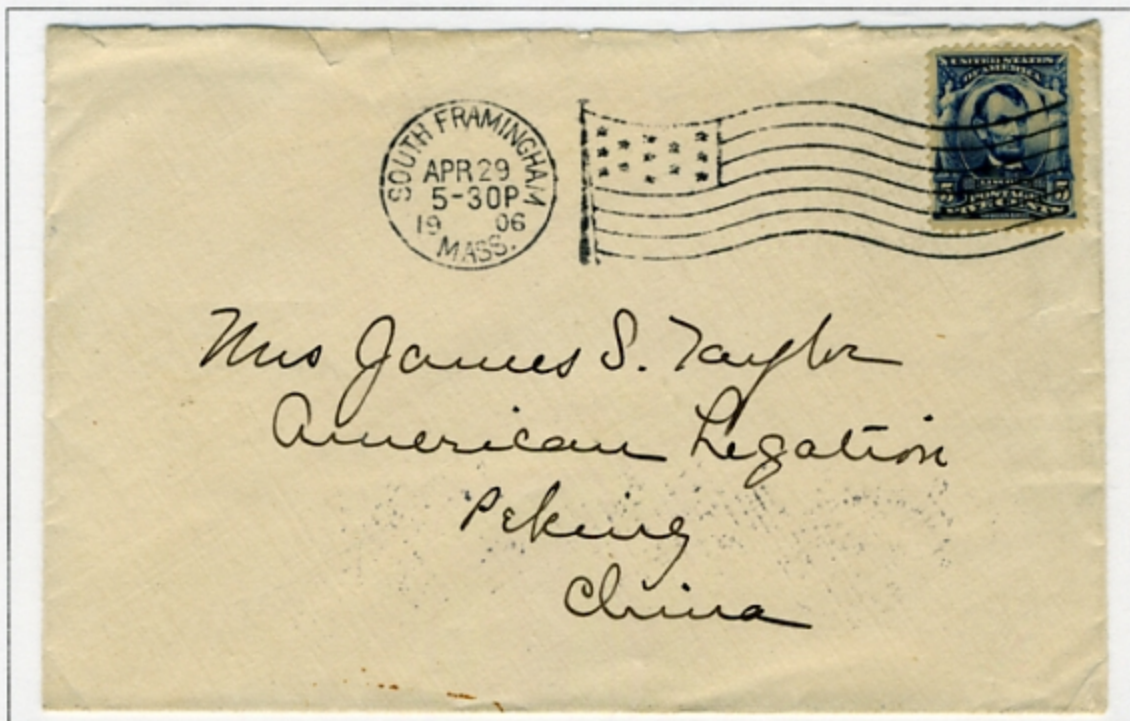 SOUTH FRAMINGHAM
APR 29
5-30P
19 06
MASS.
UNITED STATES
OF AMERICA
5 5
POSTAGE
FIVE CENTS
Mrs James S. Taylor
American Legation
Peking
China